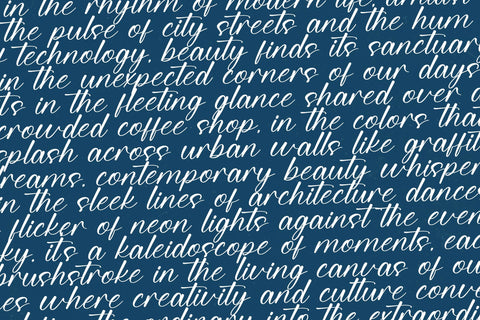 in the rhythm of modern life, amidst
the pulse of city streets and the hum
technology, beauty finds its sanctuary
in the unexpected corners of our days
its in the fleeting glance shared over a
crowded coffee shop, in the colors that
splash across urban walls like graffiti
dreams. contemporary beauty whispers
in the sleek lines of architecture dances
flicker of neon lights against the even
ky. its a kaleidoscope of moments, eac
brushstroke in the living canvas of ou
es where creativity and culture conve
the ordinary into the extraordi